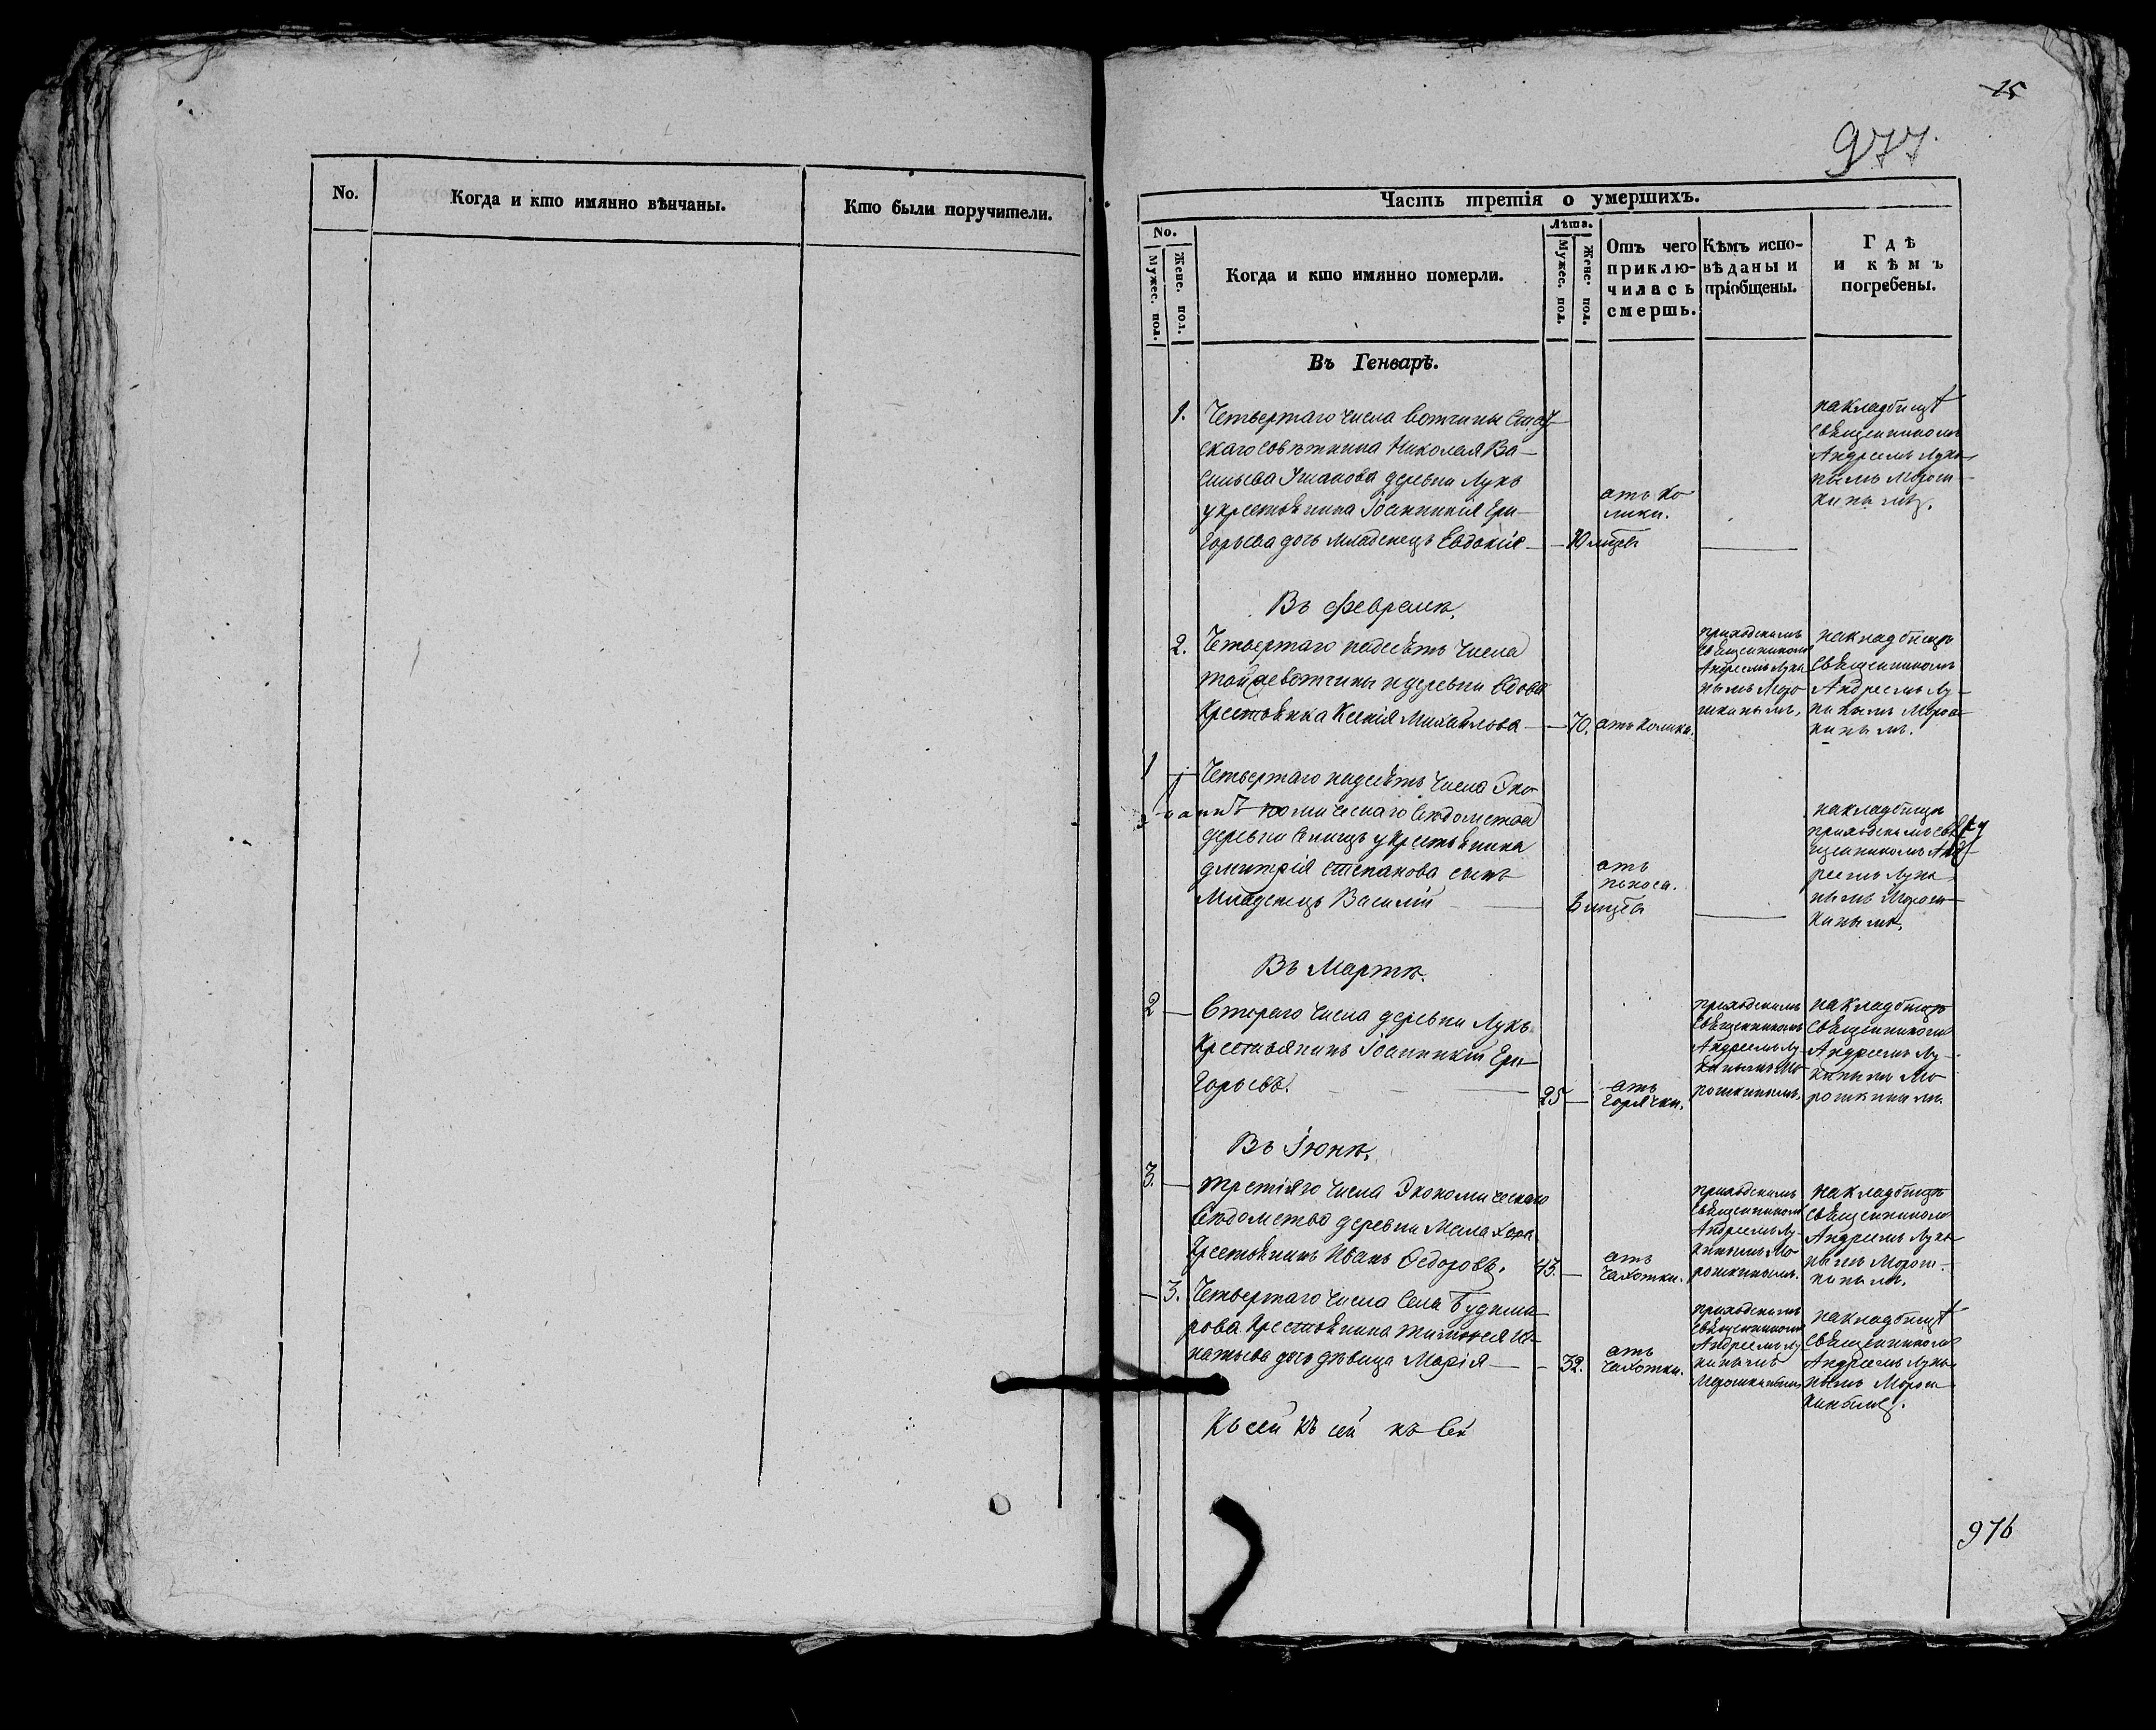 No.
Когда и кто имянно вѣнчаны.
Кто были поручители.
15
977.
Часть третія о умершихъ.
No.
Мужес. пол.
Женс. пол.
Когда и кто имянно померли.
Лѣта.
Мужес. пол.
Женс. пол.
Отъ чего
приклю-
чилась
смерть.
Кѣмъ испо-
вѣданы и
пріобщены.
Гдѣ
и кѣмъ
погребены.
Въ Генварѣ.
1.
Четвертаго числа вотчины Стат
скаго совѣтника Николая Ва-
сильева Ушакова деревни Лукъ
укрестьянина Іоанникія Гри-
горьева дочь младенецъ Евдокія
10 мцсв
отъ ко
лики.
накладбищѣ
священникомъ
Андреемъ Луки
нымъ Морош
кинымъ.
Въ Февралѣ.
2.
Четвертаго надесять числа
тойже вотчины идеревни вдова
крестьянка Ксенія Михайлова
70.
отъ колики.
приходскимъ
священникомъ
Андреемъ Луки
нымъ Моро
шкинымъ.
накладбищѣ
священникомъ
Андреемъ Лу-
кинымъ Морош
кинымъ.
1
Четвертаго надесять числа Эко
номическаго вѣдомства
деревни укрестьянина
Дмитрія Степанова сынъ
младенецъ Василій
6 мцсв
отъ
поноса.
накладбищѣ
приходскимъ свя
щенникомъ Анд
реемъ Луки
нымъ Морош
кинымъ.
Въ Мартѣ.
2
Втораго числа деревни Лукъ
крестьянинъ Іоанникій Гри-
горьевъ.
25
отъ
горячки.
приходскимъ
священникомъ
Андреемъ Лу-
кинымъ Мо
рошкинымъ.
накладбищѣ
священникомъ
Андреемъ Лу-
кинымъ Мо
рошкинымъ.
Въ Іюнѣ.
3.
третіяго числа Экономическаго
вѣдомства деревни
крестьянинъ Иванъ Ѳедоровъ.
43.
отъ
чахотки.
приходскимъ
священникомъ
Андреемъ Лу-
кинымъ Мо
рошкинымъ.
накладбищѣ
священникомъ
Андреемъ Луки
нымъ Морош-
кинымъ.
3.
Четвертаго числа села Будими-
рова крестьянина Тимоѳея Иг-
натьева дочь дѣвица Марія
32.
отъ
чахотки.
приходскимъ
священникомъ
Андреемъ Лу
кинымъ
Морошкинымъ
накладбищѣ
священникомъ
Андреемъ Луки
нымъ Морош
кинымъ.
Къ сей къ сей къ сей
976